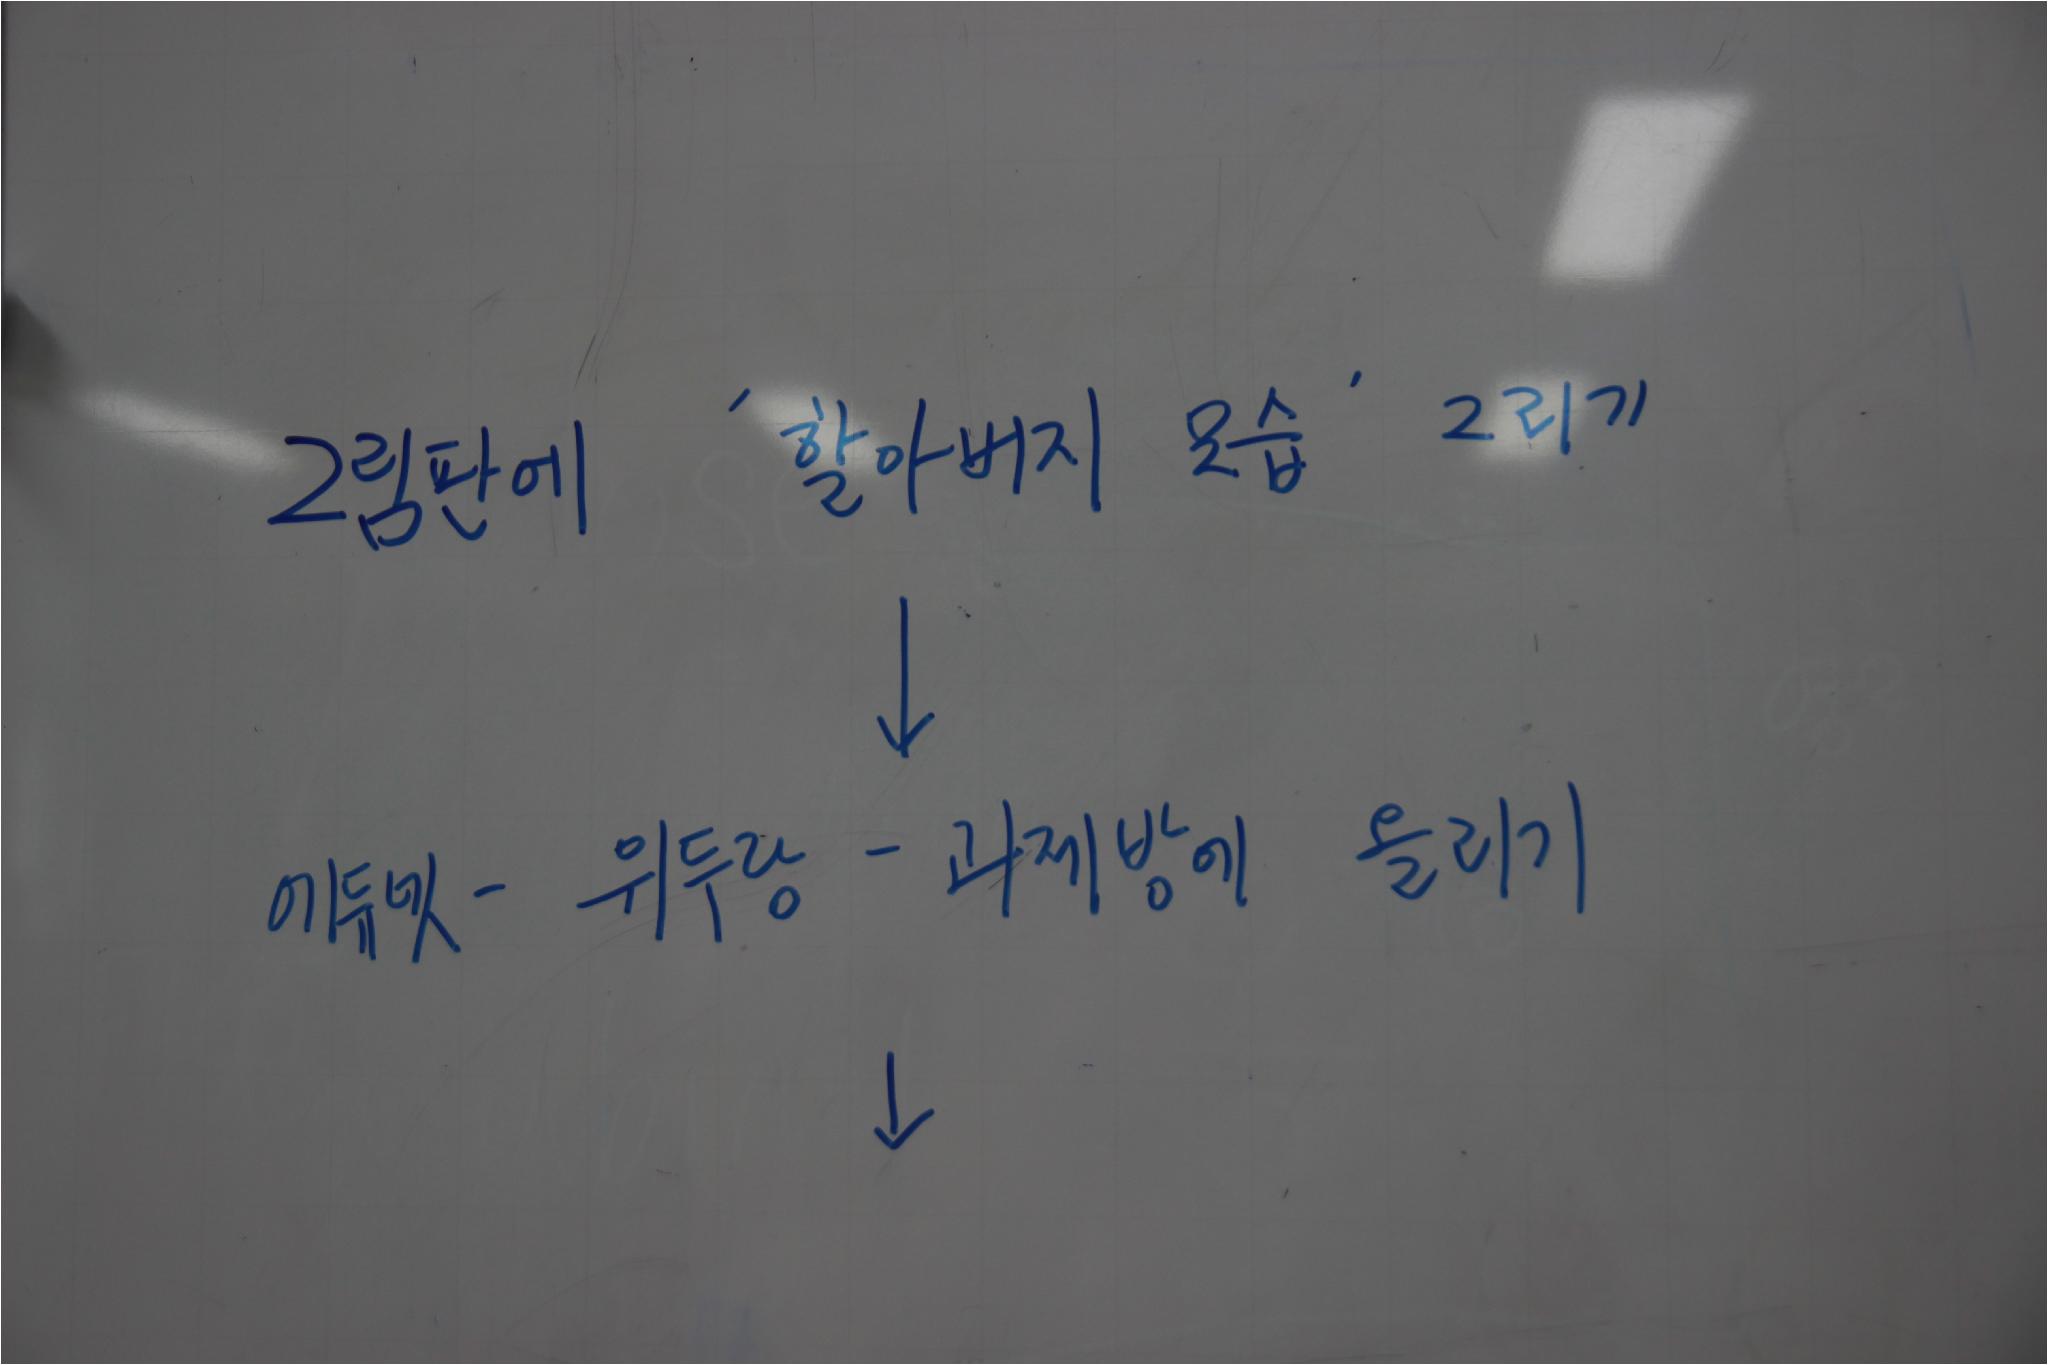 그림판에 '할아버지 모습' 그리기
↓
에듀넷 - 위두랑 - 과제방에 올리기
↓